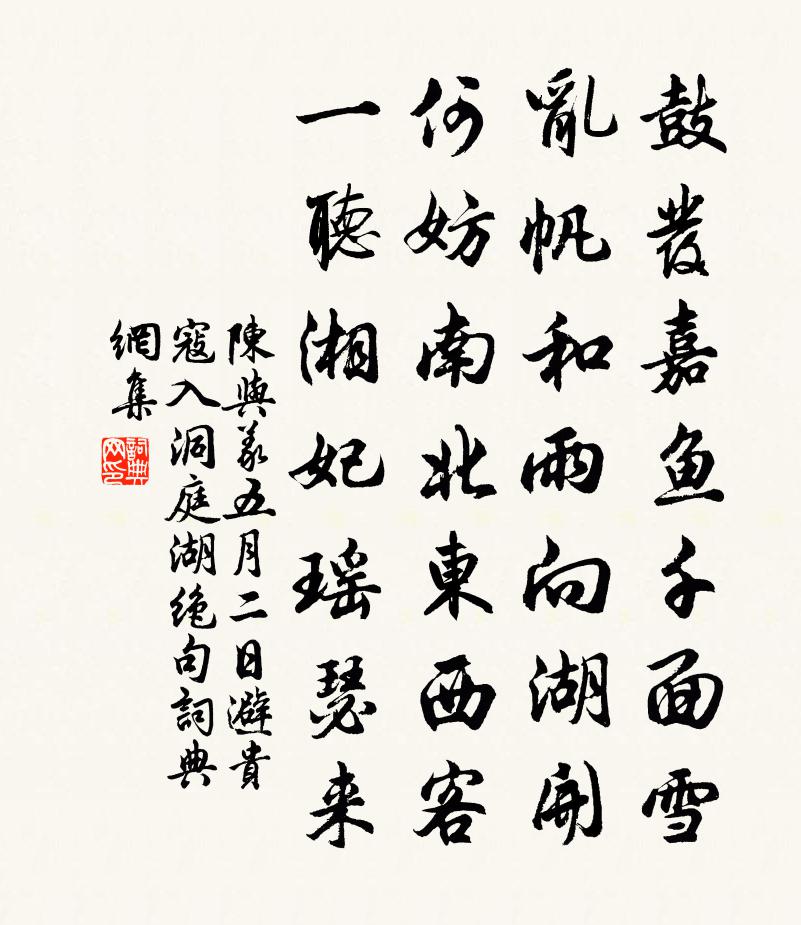 鼓發嘉鱼千面雪
亂帆和雨向湖開
何妨南北東西客
一聽湘妃瑶瑟来
陳與義五月二日避貴
寇入洞庭湖绝句詞典
網集
詞典
网印